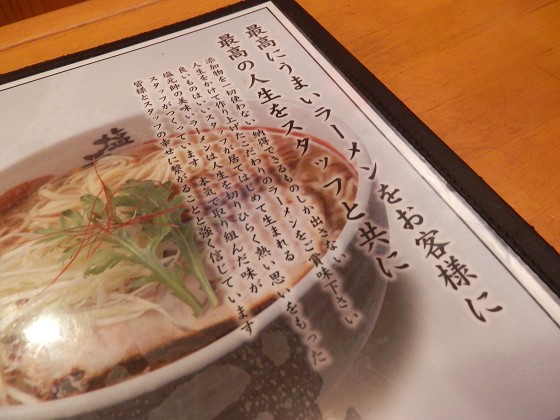 最高にうまいラーメンをお客様に
最高の人生をスタッフと共に
添加物を一切使わない 納得できるものしか出さない
人生をかけて作り上げたこだわりのラーメンをご賞味下さい
良いものはいいスタッフが居てはじめて生まれる
塩元帥の美味いラーメンは人生を切りひらく熱い思いをもった
スタッフがつくっています 本気で取り組んだ味が
皆様とスタッフの幸せに繋がることと強く信じています
塩